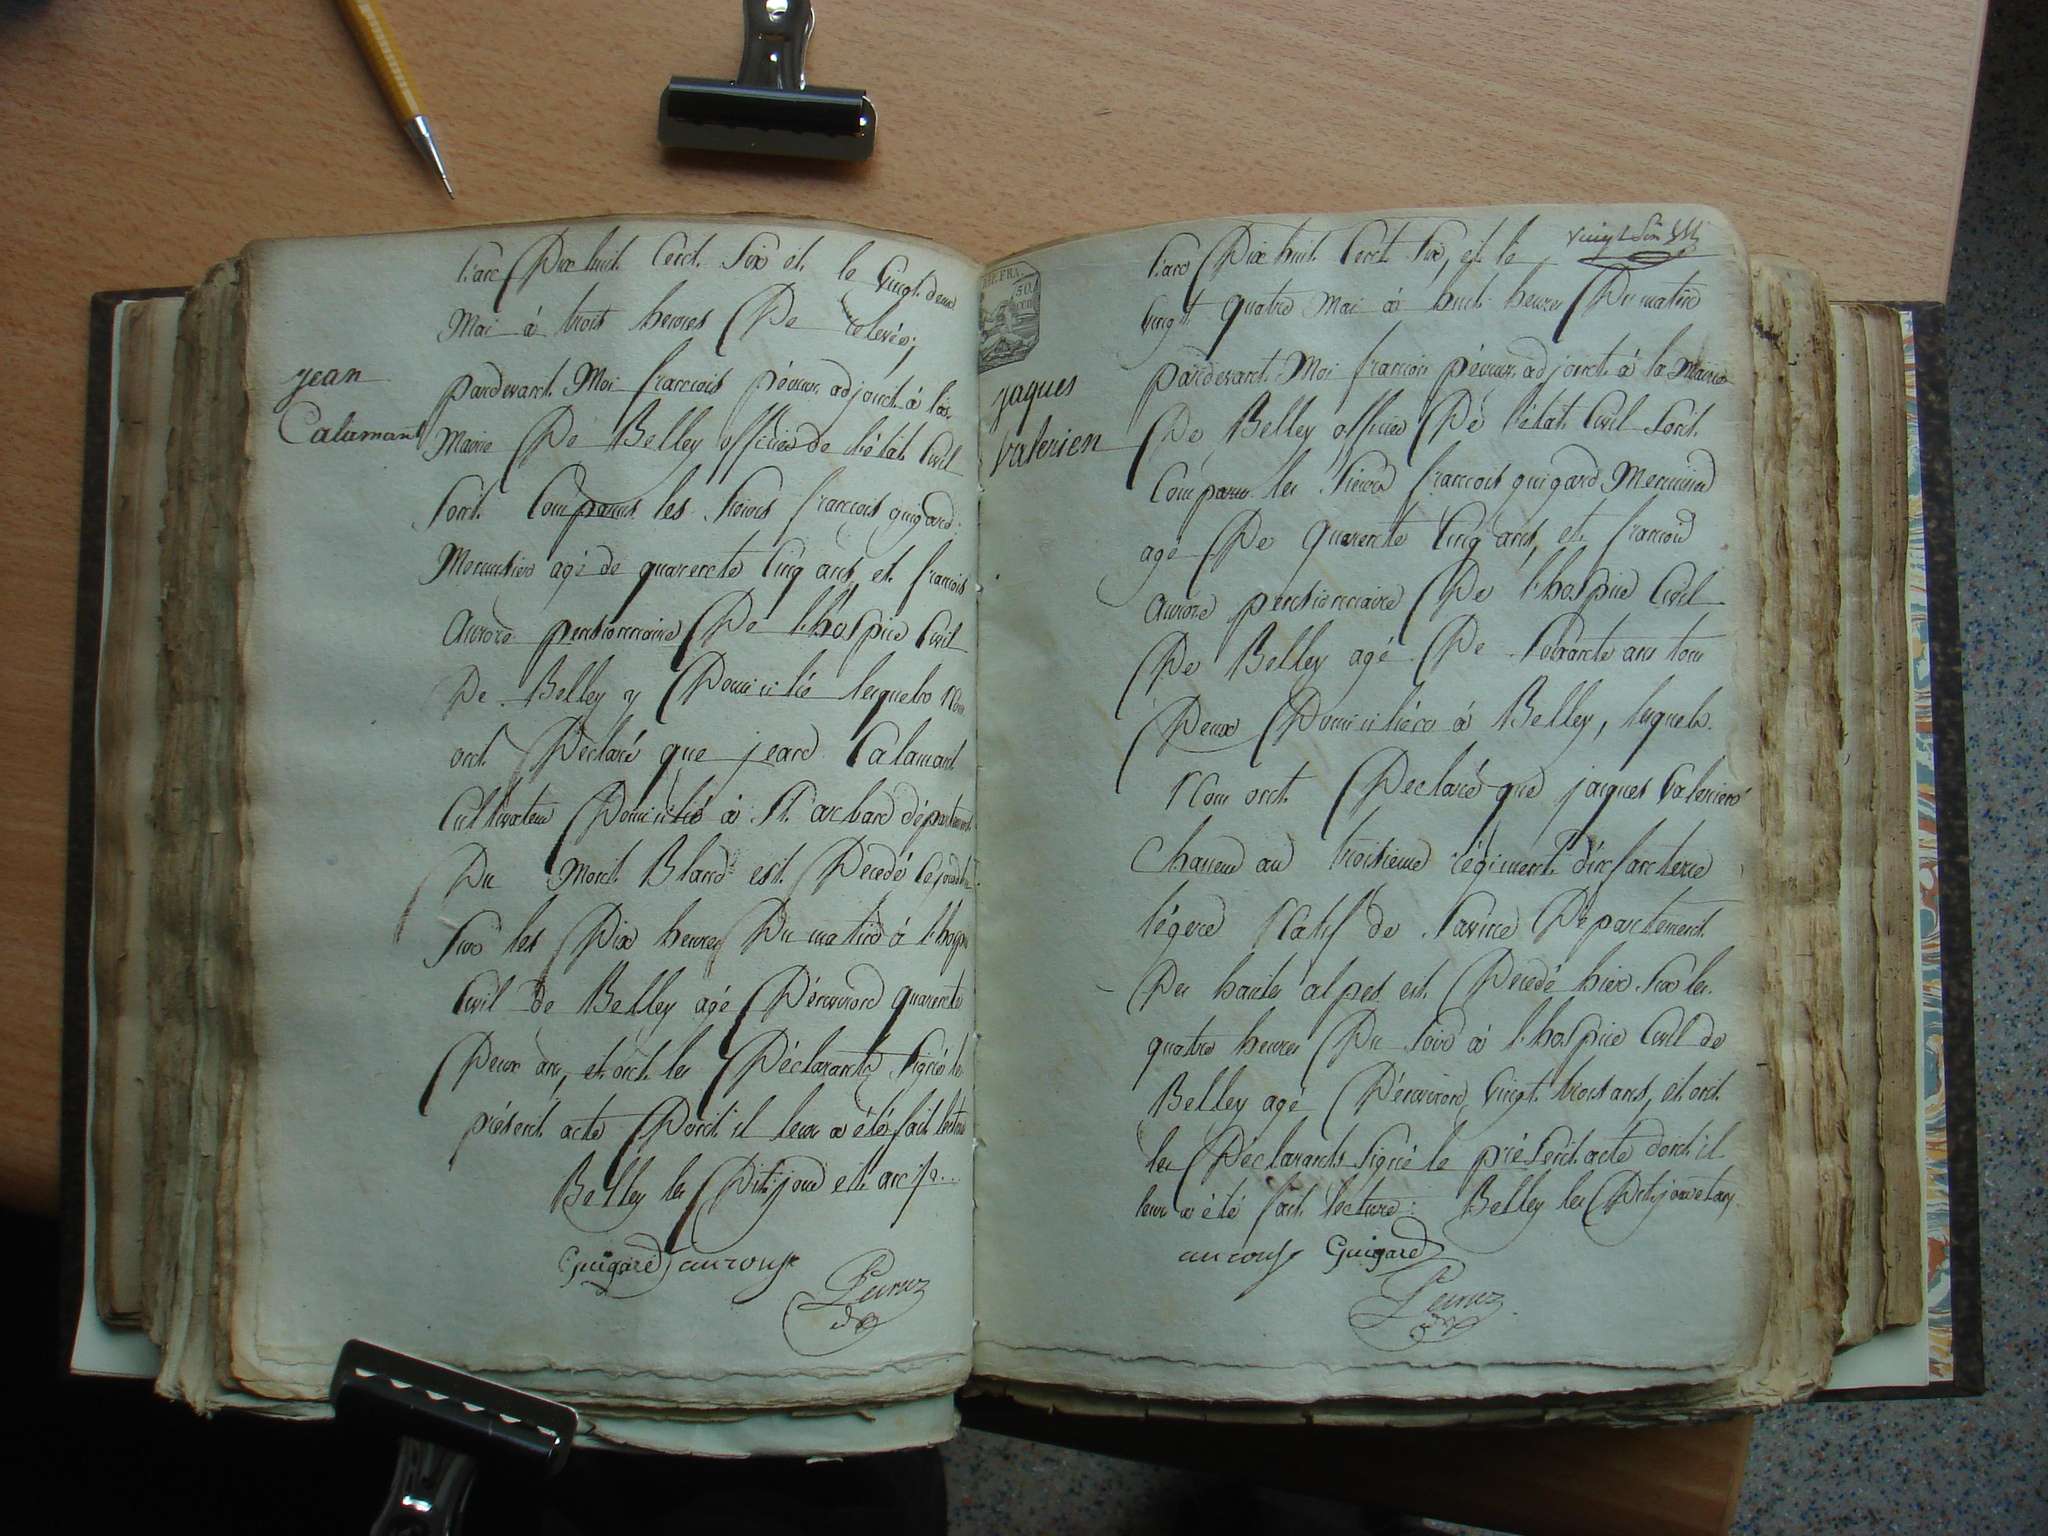 jean
Calamant
L'an Dix huit Cent Six et le Vingt deux
Mai à trois heures De relevée,
pardevant Moi francois péruz adjoint à la
Mairie De Belley officier de l'état Civil
Sont Comparus les Sieurs francois guigard
Menuisier agé de quarente Cinq ans et francois
Aurore pensionnaire De l'hospice Civil
De Belley y Domicilié lesquels Nous
ont Déclaré que jean Calamant
Cultivateur Domicilié à département
Du Mont Blanc est Décédé Cejourd'hui
Sur les Dix heures Du matin à l'hospice
Civil de Belley agé D'environ quarente
Deux ans, et ont les Déclarants Signés le
présent acte Dont il leur a été fait lecture
Belley les Dit jour et an
Guigard
Peruz
vingt Six
DE FRA.
50
jaques
Valerien
L'an Dix huit Cent Six, et le
Vingt quatre Mai à huit heures Du matin
pardevant Moi francois péruz adjoint à la Mairie
De Belley officier De l'état Civil Sont
Comparus les Sieurs francois guigard Menuisier
agé De quarente Cinq ans, et francois
Aurore pensionnaire De l'hospice Civil
De Belley agé De Soixante ans tous
Deux Domiciliés à Belley, lesquels
Nous ont Déclaré que jaques Valerien
Chasseur au troisieme régiment d'infanterie
légere Natif de Savine Département
Des hautes alpes est Décédé hier Sur les
quatre heures Du Soir à l'hospice Civil de
Belley agé D'environ Vingt trois ans, et ont
les Déclarants Signé le présent acte dont il
leur a été fait lecture: Belley les Dit jour et an
Guigard
Peruz